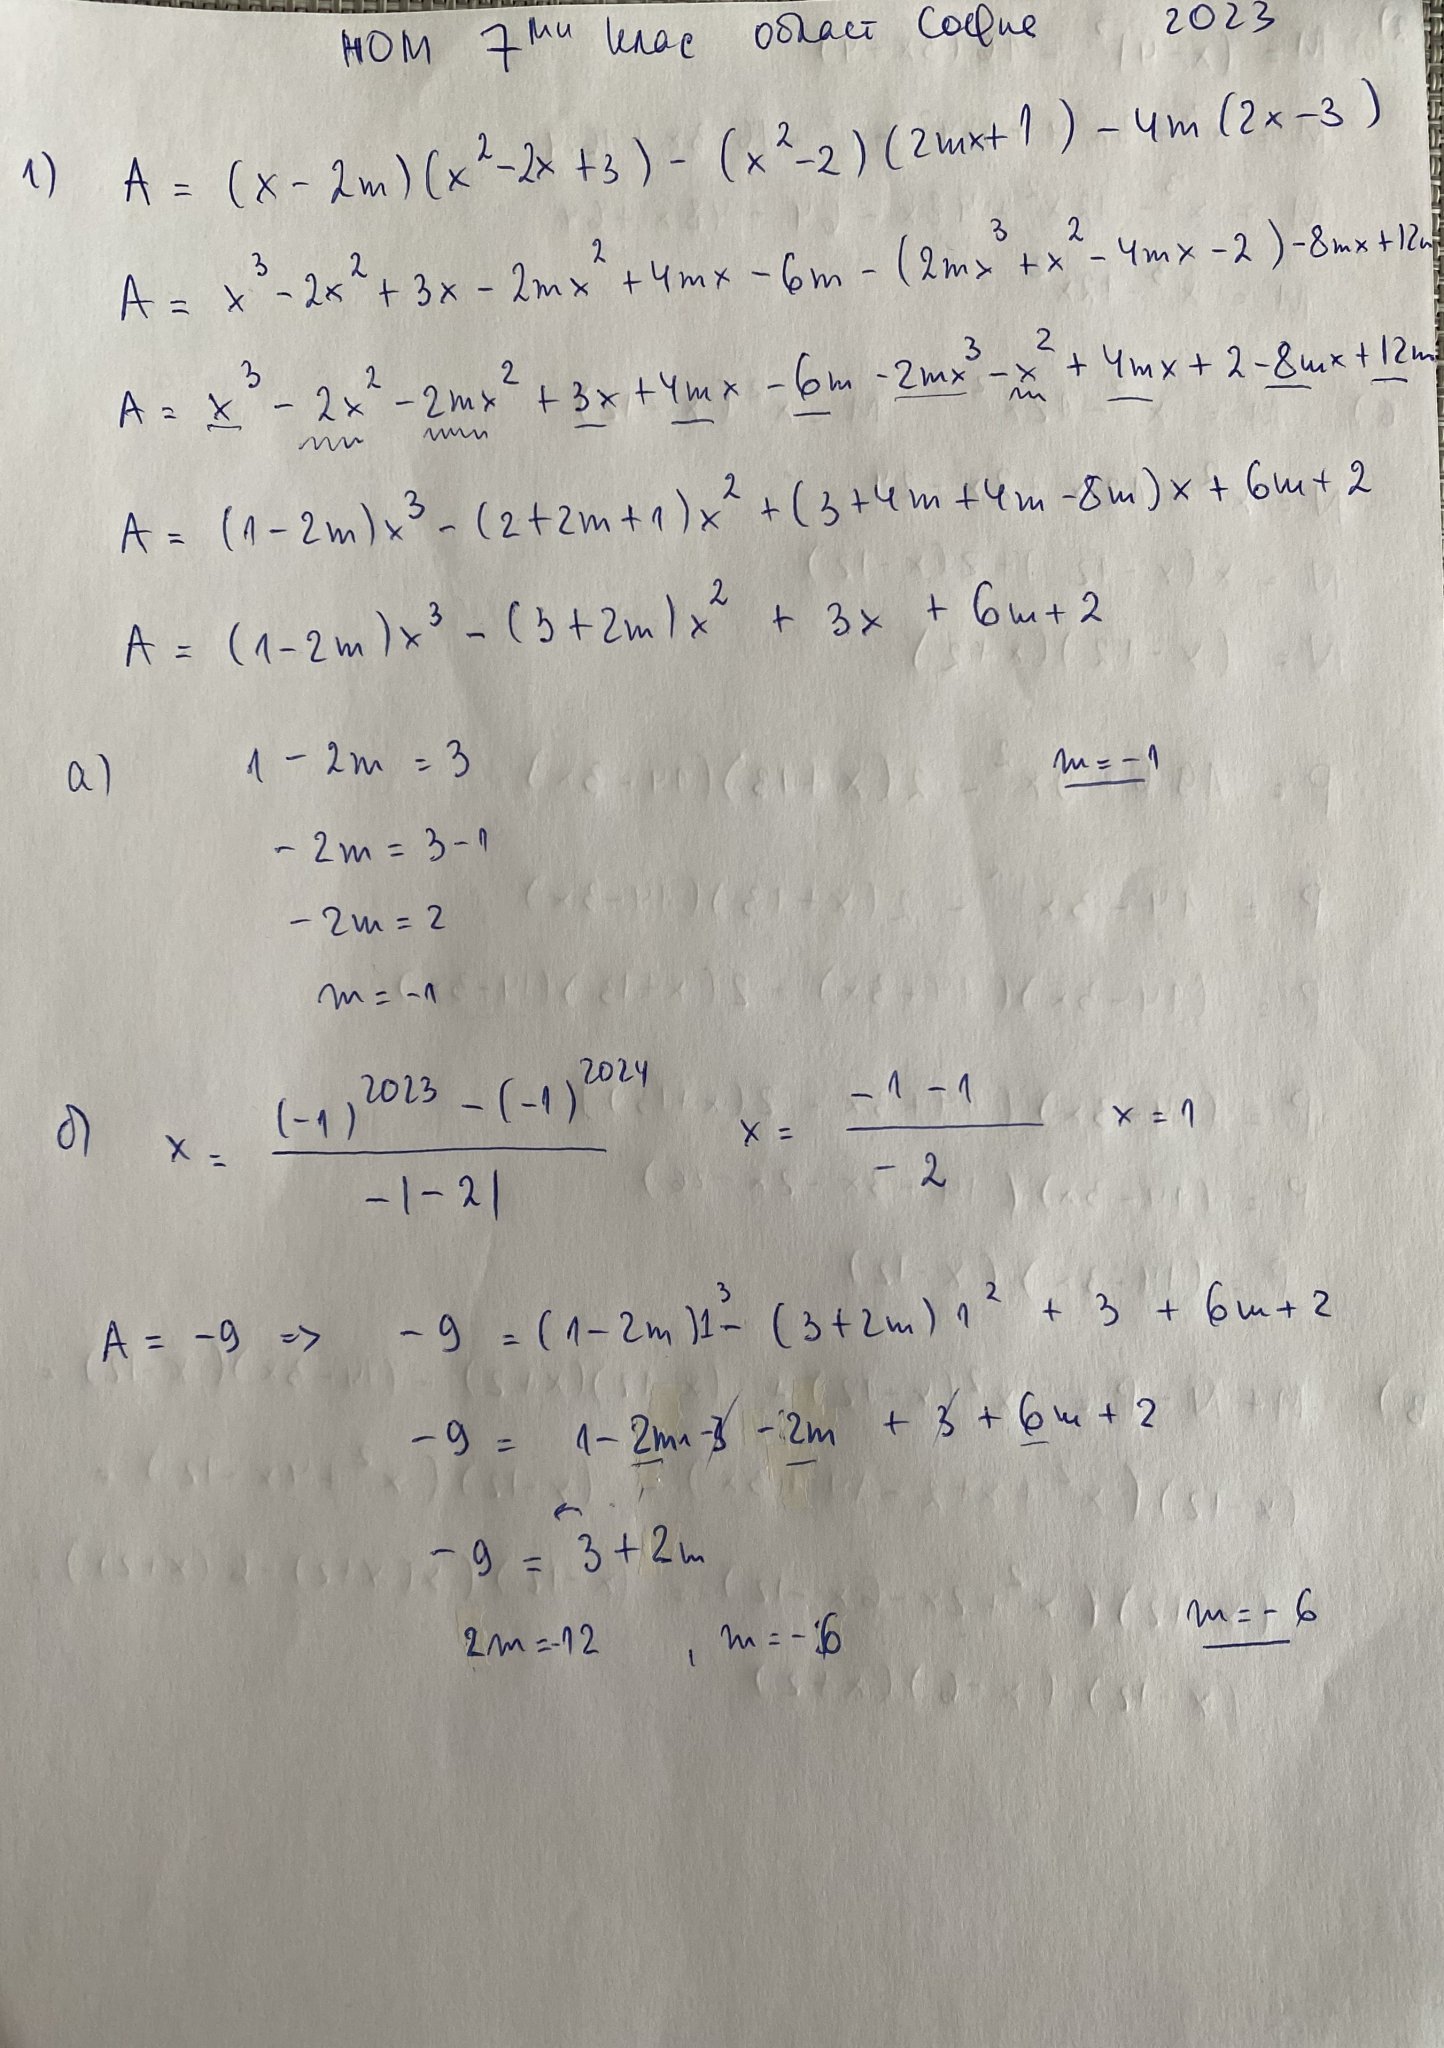 НОМ 7ми клас област София 2023
1) A = (x - 2m)(x² - 2x + 3) - (x² - 2)(2mx + 1) - 4m(2x - 3)
A = x³ - 2x² + 3x - 2mx² + 4mx - 6m - (2mx³ + x² - 4mx - 2) - 8mx + 12m
A = x³ - 2x² - 2mx² + 3x + 4mx - 6m - 2mx³ - x² + 4mx + 2 - 8mx + 12m
A = (1 - 2m)x³ - (2 + 2m + 1)x² + (3 + 4m + 4m - 8m)x + 6m + 2
A = (1 - 2m)x³ - (3 + 2m)x² + 3x + 6m + 2
a) 1 - 2m = 3 m = -1
-2m = 3 - 1
-2m = 2
m = -1
б) x = ((-1)²⁰²³ - (-1)²⁰²⁴) / (-|-2|) x = (-1 - 1) / (-2) x = 1
A = -9 => -9 = (1 - 2m)1³ - (3 + 2m)1² + 3 + 6m + 2
-9 = 1 - 2m - 3 - 2m + 3 + 6m + 2
-9 = 3 + 2m
2m = -12 , m = -6 m = -6